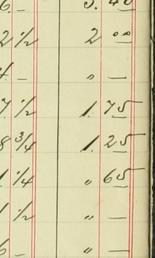 6 – 3. 40
2 ½ 2 00
4 – " —
7 ½ 1. 75
8 ¾ 1. 25
1 ¼ " 65
1 ½ " —
6 – " —